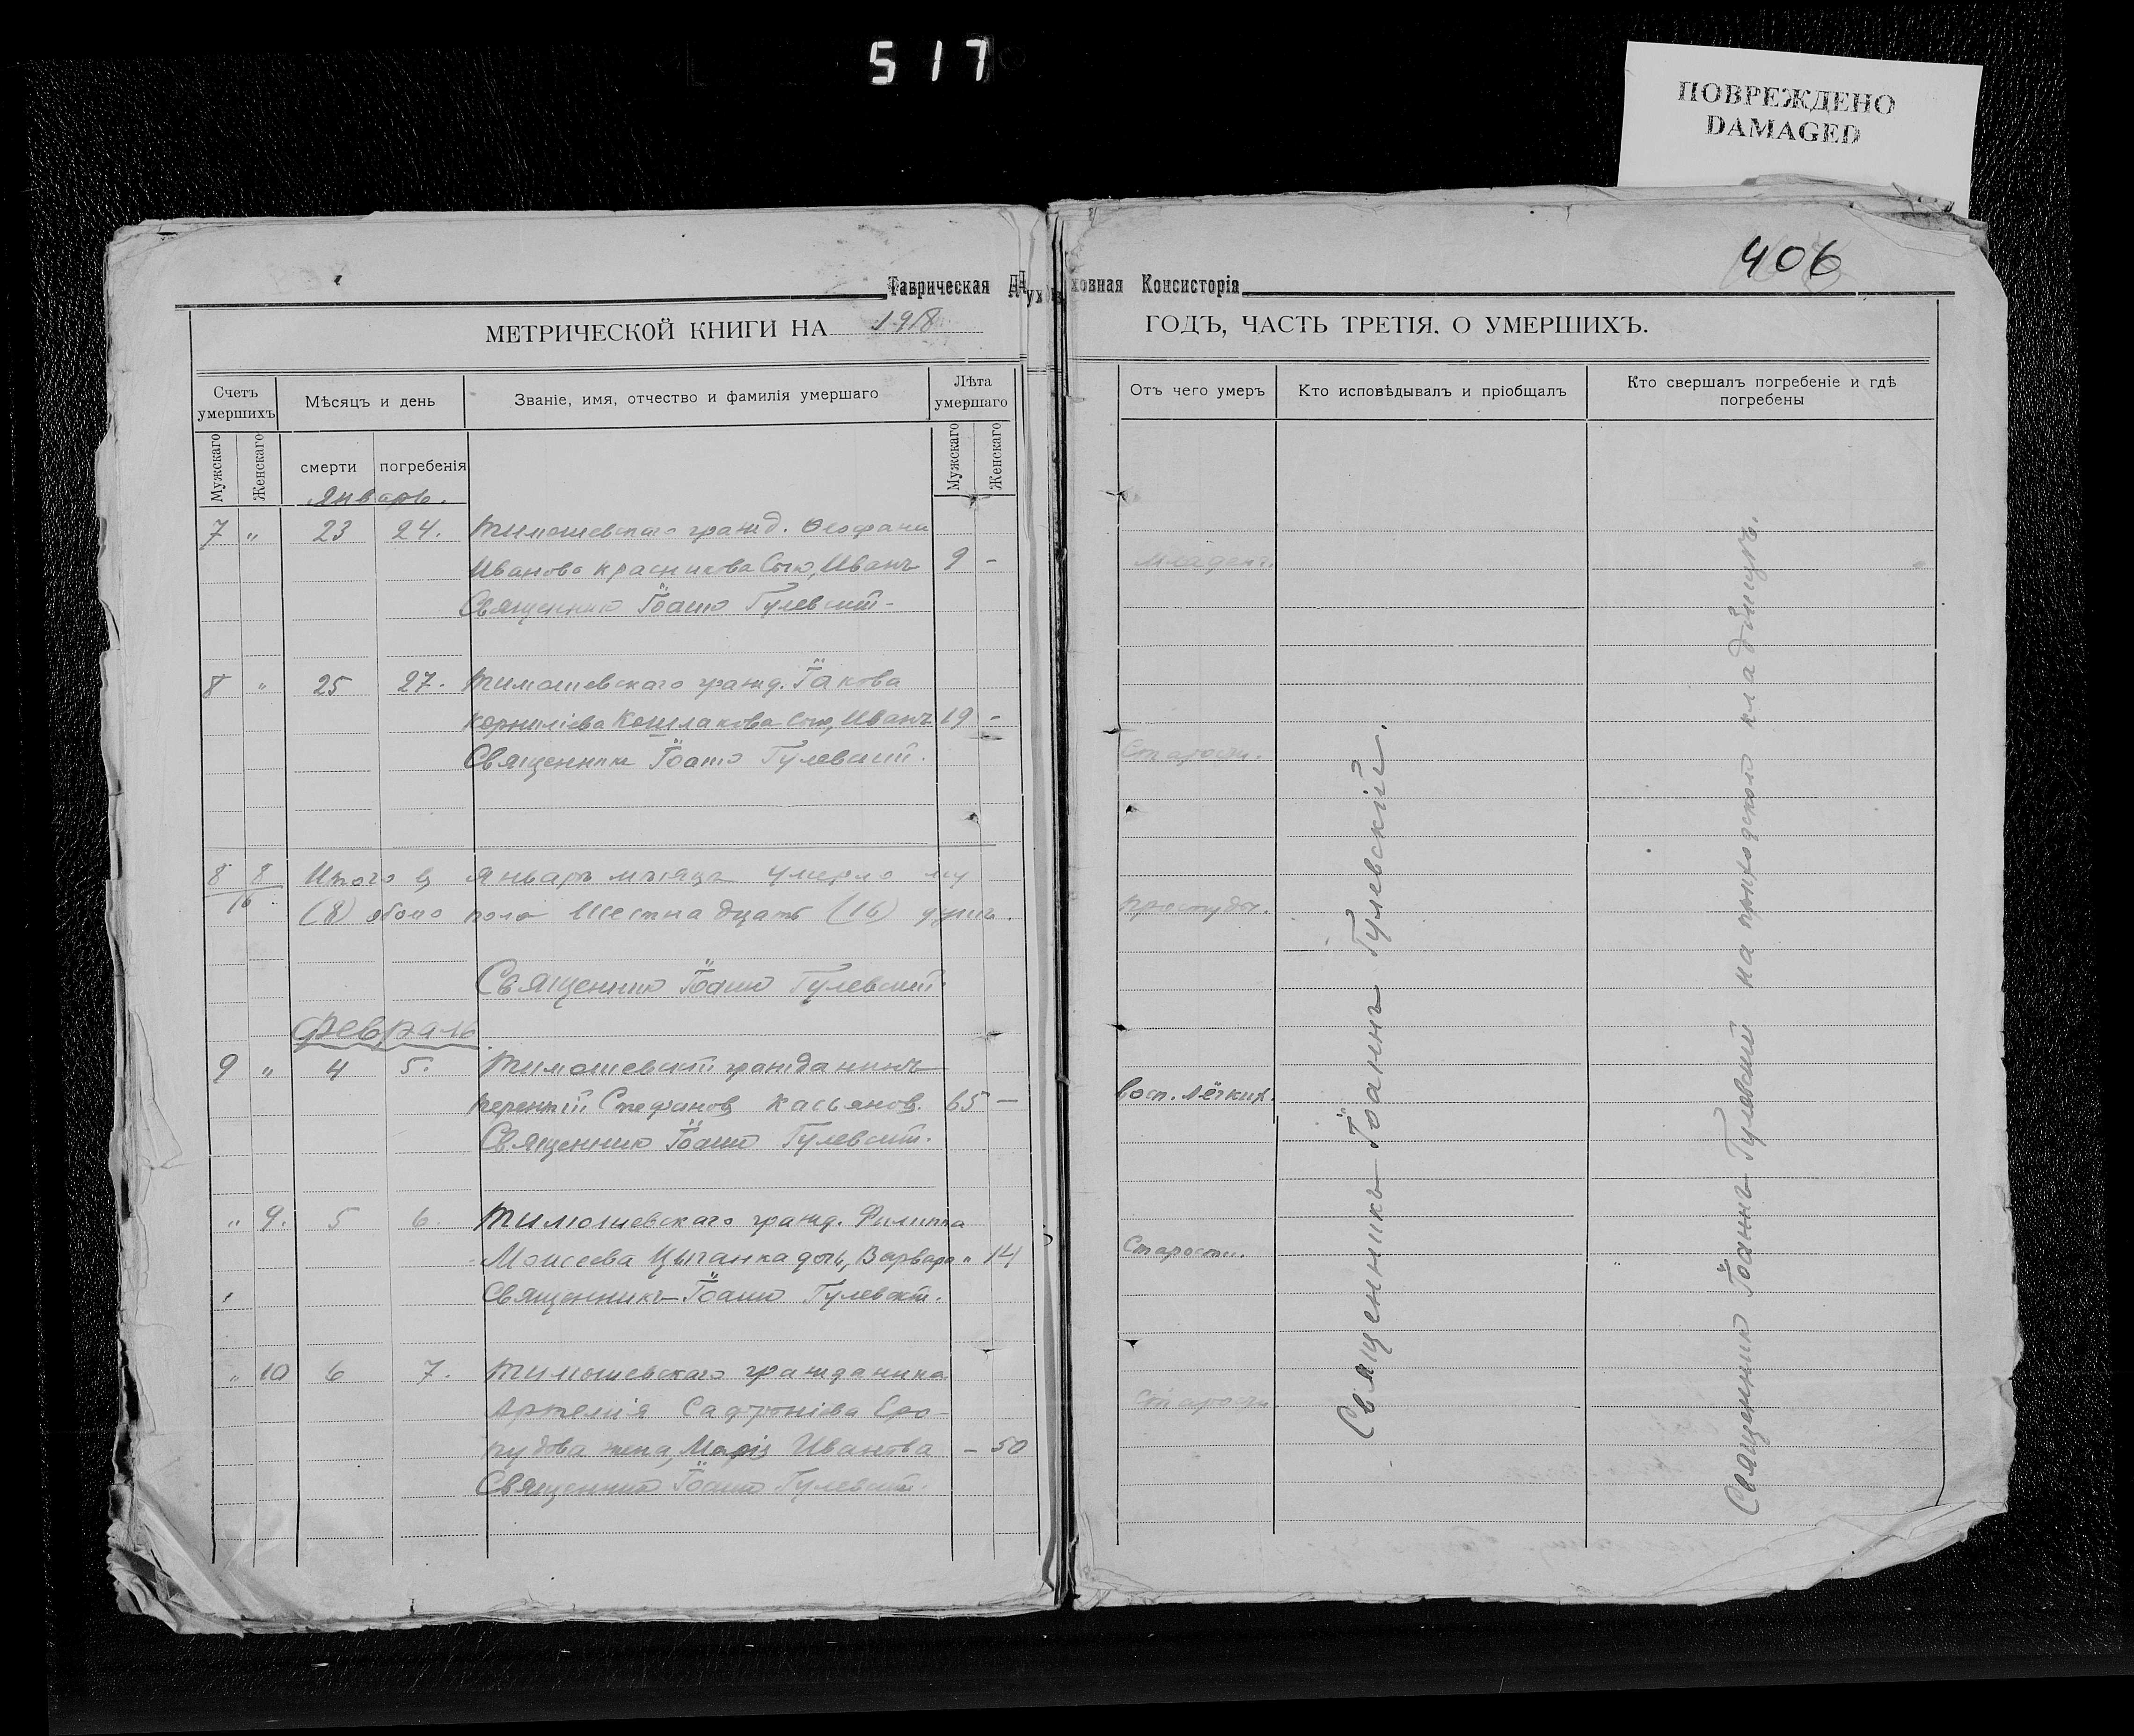 517
ПОВРЕЖДЕНО
DAMAGED
406
Таврическая Духовная Консисторія
МЕТРИЧЕСКОЙ КНИГИ НА 1918
ГОДЪ, ЧАСТЬ ТРЕТІЯ. О УМЕРШИХЪ.
Счетъ умершихъ
Мужскаго
Женскаго
Мѣсяцъ и день
смерти
погребенія
Званіе, имя, отчество и фамилія умершаго
Лѣта умершаго
Мужскаго
Женскаго
Январь.
7 " 23 24. Тимошевскаго гражд. Ѳеофана
Иванова Красникова Сынъ, Иванъ 9 -
Священникъ Іоаннъ Гулевскій-
8 " 25 27. Тимошевскаго гражд. Іакова
Корниліева Кошлакова Сынъ, Иванъ 19 -
Священникъ Іоаннъ Гулевскій.
8 8 Итого въ Январѣ мѣсяцѣ умерло му
16 (8) обоего пола Шестнадцать (16) душъ.
Священникъ Іоаннъ Гулевскій.
Февраль
9 " 4 5. Тимошевскій гражданинъ
Терентій Стефановъ Касьянов. 65 -
Священникъ Іоаннъ Гулевскій.
" 9. 5 6. Тимошевскаго гражд. Филиппа
Моисеева Цыганка дочь, Варвара " 14
Священникъ Іоаннъ Гулевскій.
" 10 6 7. Тимошевскаго гражданина
Артемія Сафроніева Еро-
пудова жена, Марія Иванова - 50
Священникъ Іоаннъ Гулевскій.
Отъ чего умеръ
Кто исповѣдывалъ и пріобщалъ
Кто свершалъ погребеніе и гдѣ погребены
Младенч.
Старости.
Простуды.
Восп. лёгких.
Старости.
Старости
Священникъ Іоаннъ Гулевскій.
Священникъ Іоаннъ Гулевскій на приходскомъ кладбищѣ.